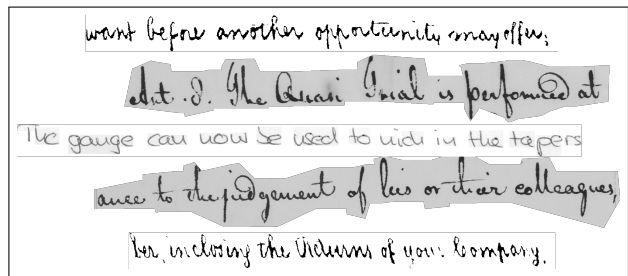 want before another opportunity may offer;
Art. 2. The Quasi Trial is performed at
The gauge can now be used to nich in the tapers
ance to the judgement of his or their colleagues,
ber, inclosing the Returns of your Company.